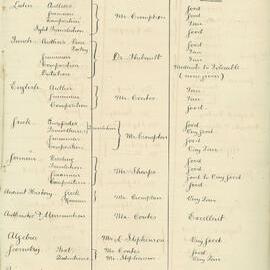 Latin Authors Mr. Crompton Good
Grammar Good
Composition Good
Sight Translation Fair
French Authors Prose Dr. Thibault Good
Poetry
Grammar Fair
Composition Fair
Dictation Moderate to Tolerable
(none given)
English Author Mr. Contes Fair
Grammar Fair
Composition Good
Greek Translation Mr. Crompton Good
Grammar Very Good
Composition Very Fair
German Reading Mr. Sharpe Good
Translation Good
Grammar Good to Very Good
Composition Good
Ancient History Greek Mr. Crompton Very Fair
Roman
Arithmetic & Mensuration Mr. Contes Excellent
Algebra Mr. Stephenson Very Good
Geometry Text Mr. Contes Good
Deductions Mr. Stephenson Very Fair